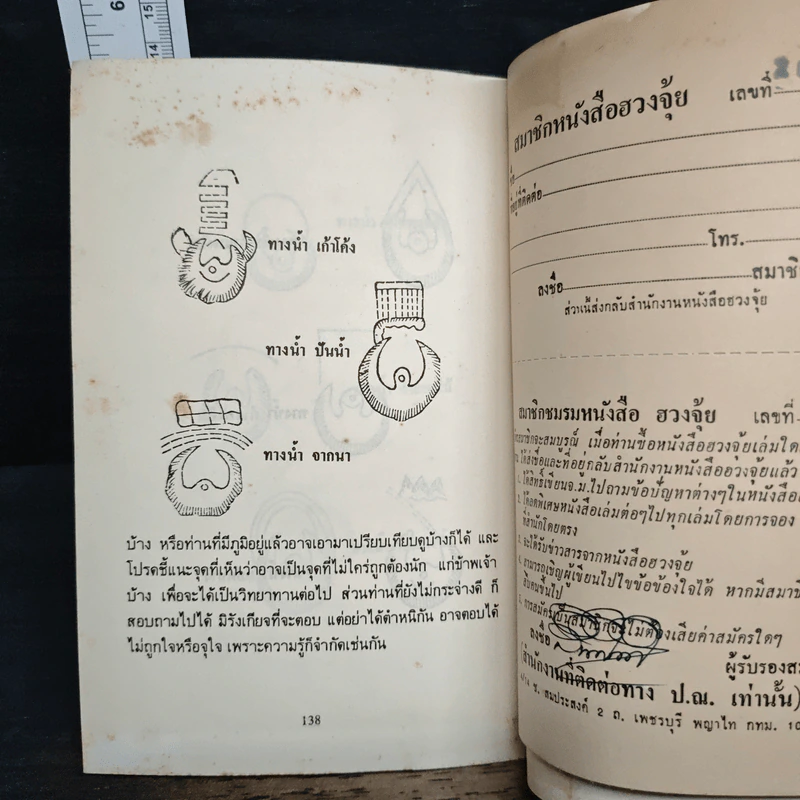 6
15
14
ทางน้ำ เก้าโค้ง
ทางน้ำ ปันน้ำ
ทางน้ำ จากนา
บ้าง หรือท่านที่มีภูมิอยู่แล้วอาจเอามาเปรียบเทียบดูบ้างก็ได้ และ
โปรดชี้แนะจุดที่เห็นว่าอาจเป็นจุดที่ไม่ใคร่ถูกต้องนัก แก่ข้าพเจ้า
บ้าง เพื่อจะได้เป็นวิทยาทานต่อไป ส่วนท่านที่ยังไม่กระจ่างดี ก็
สอบถามไปได้ มิรังเกียจที่จะตอบ แต่อย่าได้ตำหนิกัน อาจตอบได้
ไม่ถูกใจหรือจุใจ เพราะความรู้ก็จำกัดเช่นกัน
138
สมาชิกหนังสือฮวงจุ้ย เลขที่
ที่อยู่ที่ติดต่อ
โทร.
ลงชื่อ สมาชิ
ส่วนนี้ส่งกลับสำนักงานหนังสือฮวงจุ้ย
สมาชิกชมรมหนังสือ ฮวงจุ้ย เลขที่
สมาชิกจะสมบูรณ์ เมื่อท่านซื้อหนังสือฮวงจุ้ยเล่มใด
ได้ส่งชื่อและที่อยู่กลับสำนักงานหนังสือฮวงจุ้ยแล้ว
1. ได้สิทธิ์เขียนจ.ม.ไปถามข้อปัญหาต่างๆในหนังสือ
2. ได้ลดพิเศษหนังสือเล่มต่อๆไปทุกเล่มโดยการจอง
ที่สำนักโดยตรง
3. จะได้รับข่าวสารจากหนังสือฮวงจุ้ย
4. สามารถเชิญผู้เขียนไปไขข้อข้องใจได้ หากมีสมาชิ
สิบคนขึ้นไป
การสมัครเป็นสมาชิกจะไม่ต้องเสียค่าสมัครใดๆ
ลงชื่อ ผู้รับรองส
(สำนักงานที่ติดต่อทาง ป.ณ. เท่านั้น)
ซ. สมประสงค์ 2 ถ. เพชรบุรี พญาไท กทม. 10